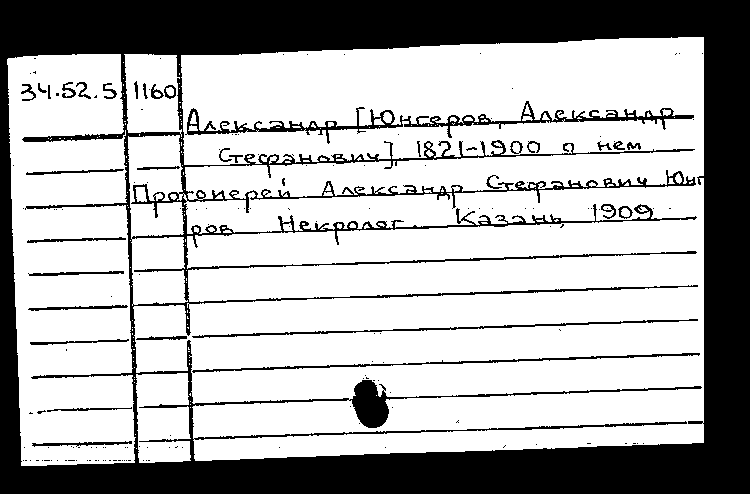 34.52.5 1160
Александр [Юнгеров, Александр
Стефанович], 1821-1900 о нем
Протоиерей Александр Стефанович Юнг
ров Некролог. Казань, 1909